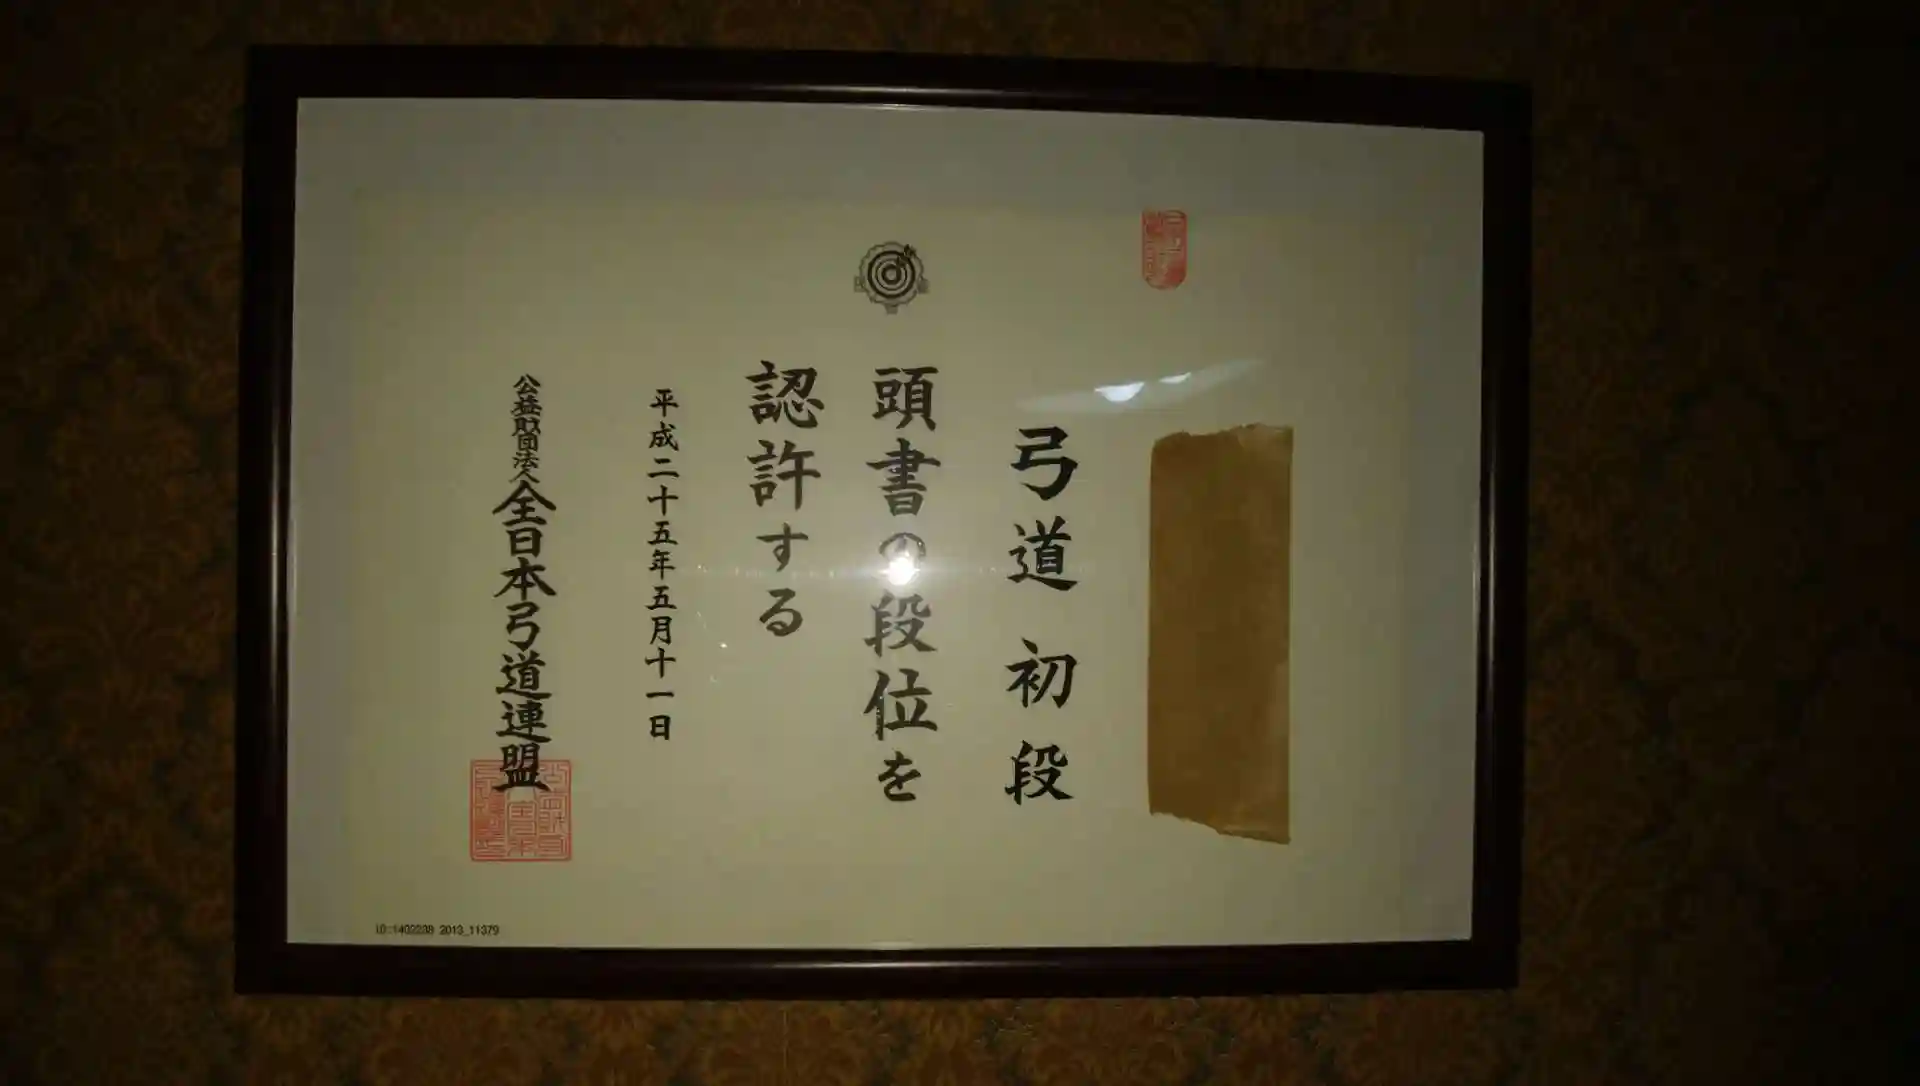 弓道 初段
頭書の段位を
認許する
平成二十五年五月十一日
公益財団法人全日本弓道連盟
ID:1402238 2013_11379